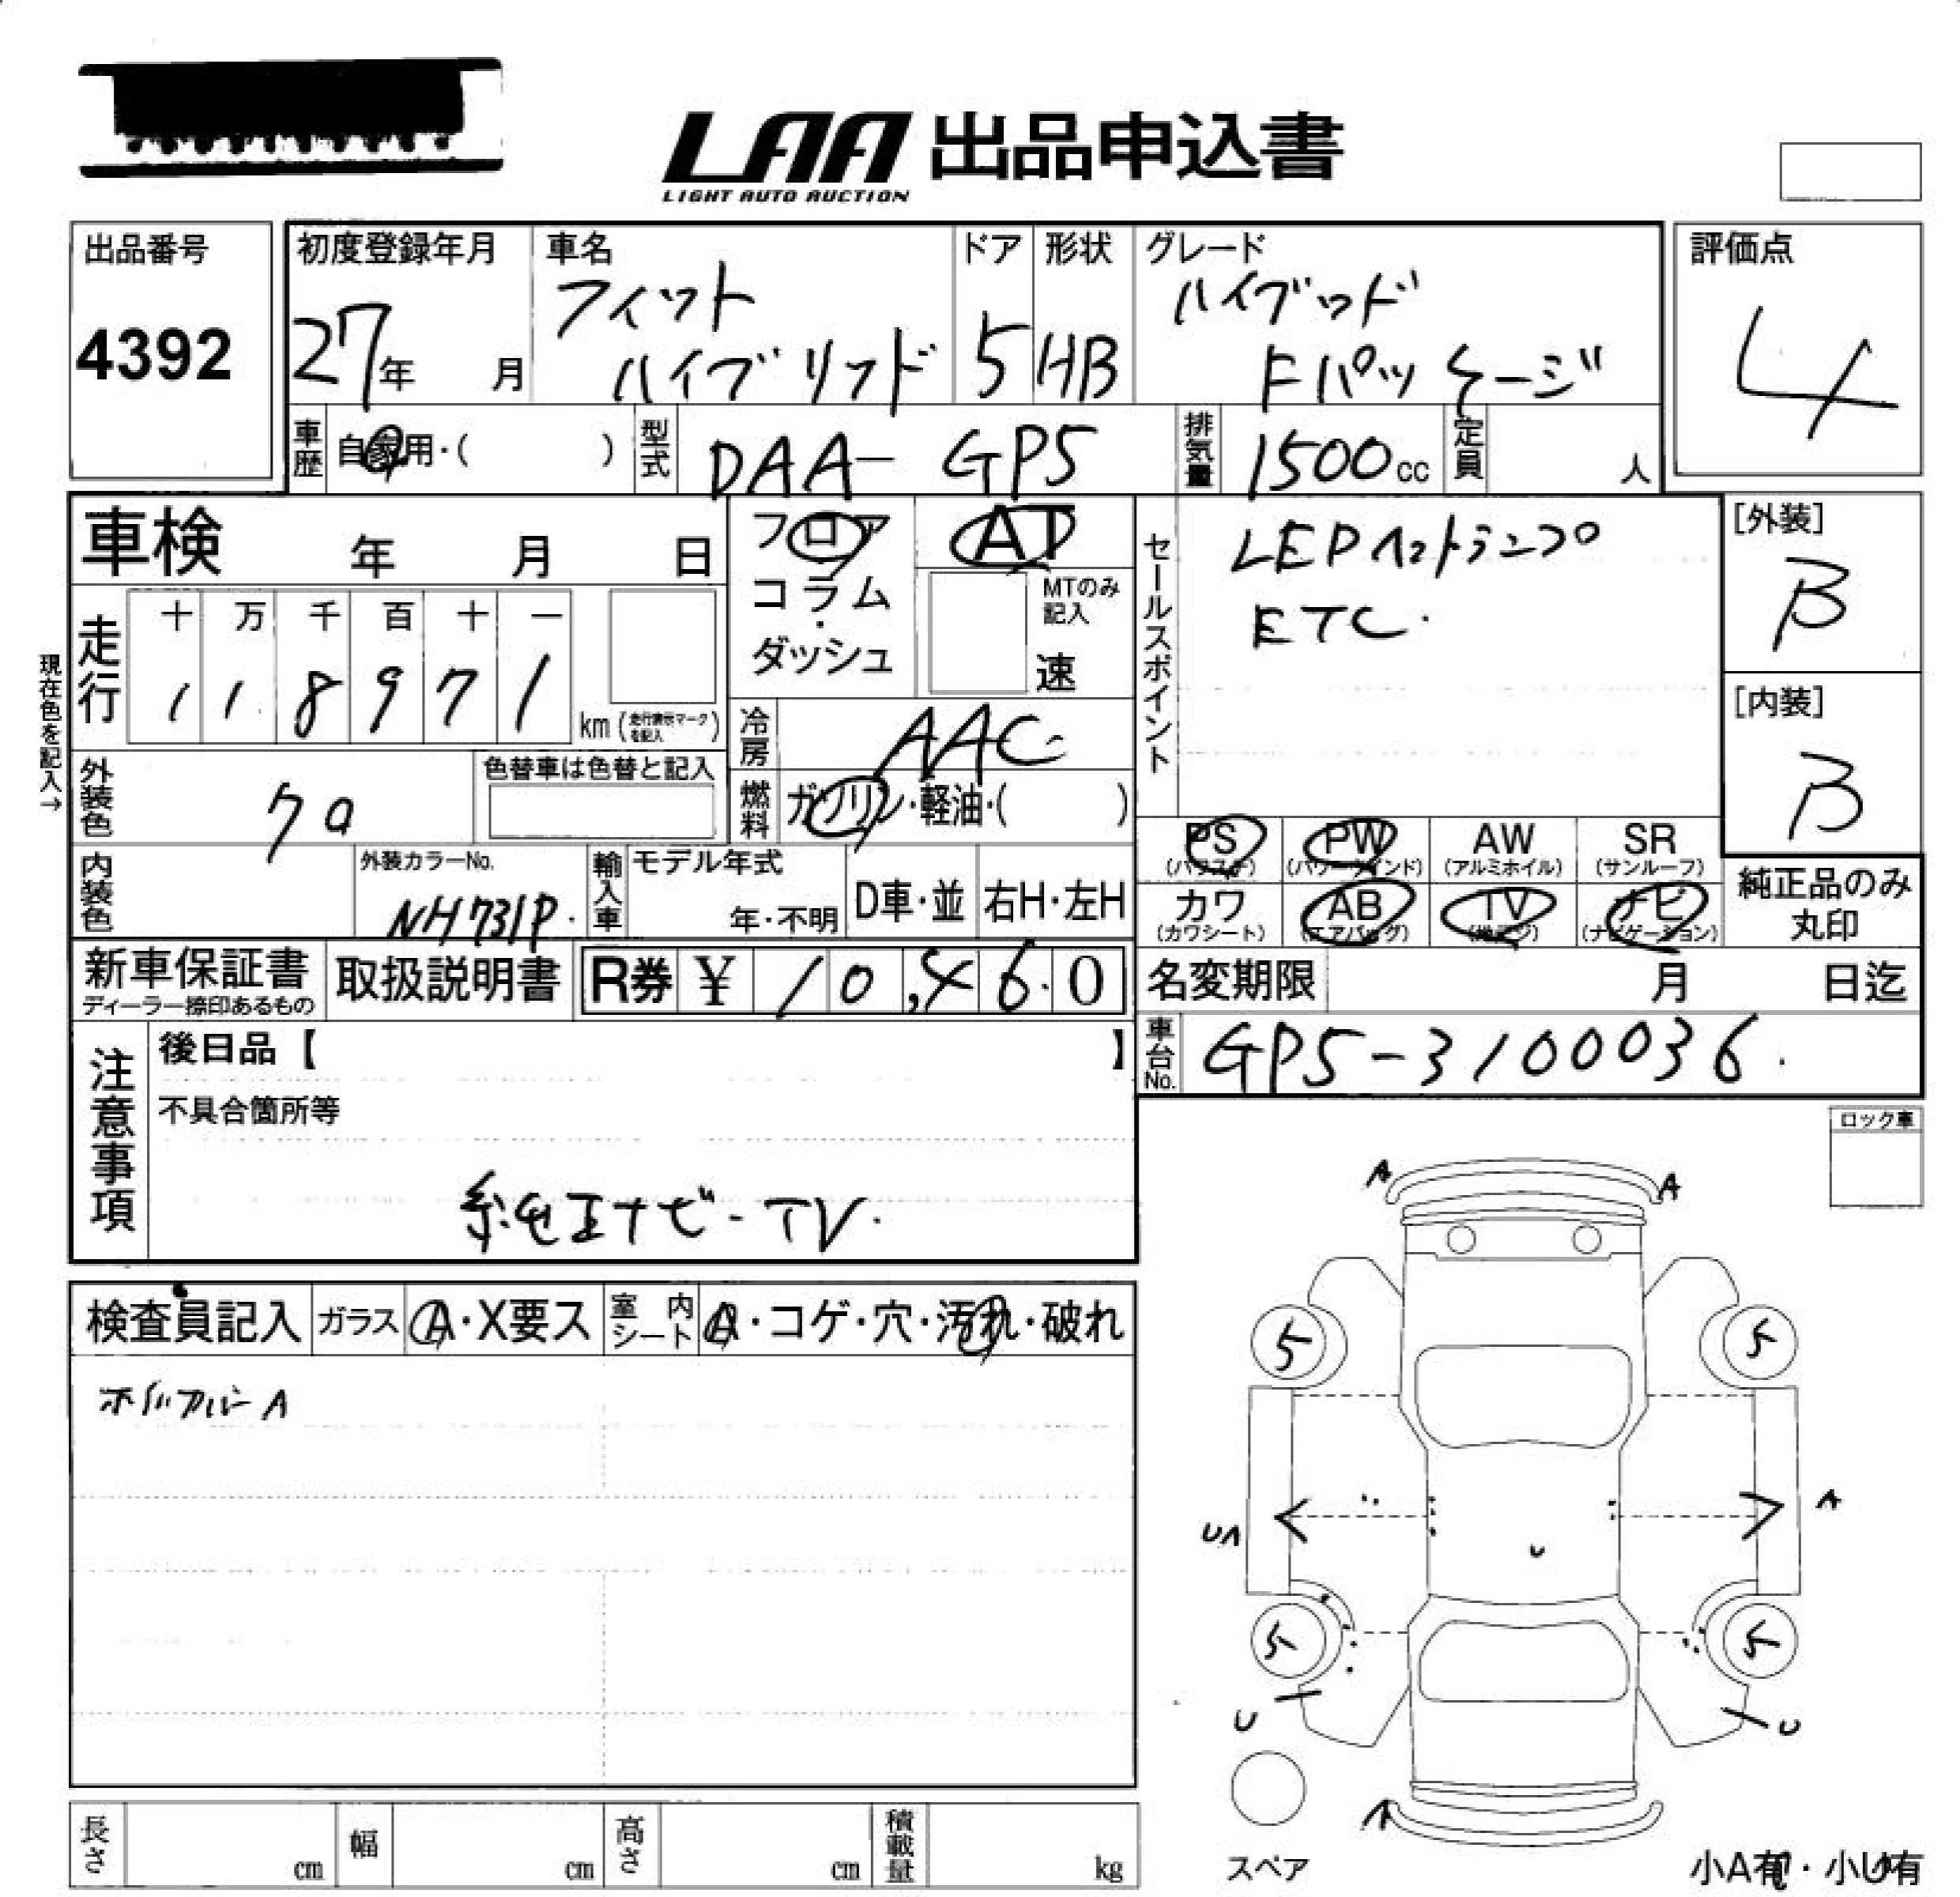 LAA 出品申込書
LIGHT AUTO AUCTION
出品番号
4392
初度登録年月
27年 月
車名
フィット
ハイブリッド
ドア
5
形状
HB
グレード
ハイブッド
Fパッケージ
評価点
4
車歴 自家用・( )
型式 DAA- GP5
排気量 1500cc
定員 人
車検 年 月 日
フロア
コラム
・
ダッシュ
AT
MTのみ
記入
速
セールスポイント
LEDヘットランプ
ETC.
[外装]
B
[内装]
B
現在色を記入→
走行
十 万 千 百 十 一
1 1 8 9 7 1
km (走行表示マークを記入)
冷房 AAC
外装色 クロ
色替車は色替と記入
燃料 ガソリン・軽油・( )
PS (パワステ)
PW (パワーウインド)
AW (アルミホイル)
SR (サンルーフ)
内装色
外装カラーNo.
NH731P.
輸入車
モデル年式
年・不明
D車・並
右H・左H
カワ (カワシート)
AB (エアバッグ)
TV (地デジ)
ナビ (ナビゲーション)
純正品のみ
丸印
新車保証書
ディーラー捺印あるもの
取扱説明書
R券 ¥ 10,460
名変期限 月 日迄
車台No. GP5-3100036.
注意事項
後日品【 】
不具合箇所等
純正ナビ-TV.
ロック車
検査員記入
ガラス A・X要ス
室内シート A・コゲ・穴・汚れ・破れ
A
A
A
5
5
UA
A
U
5
5
U
U
A
スペア
小A有・小U有
長さ cm
幅 cm
高さ cm
積載量 kg